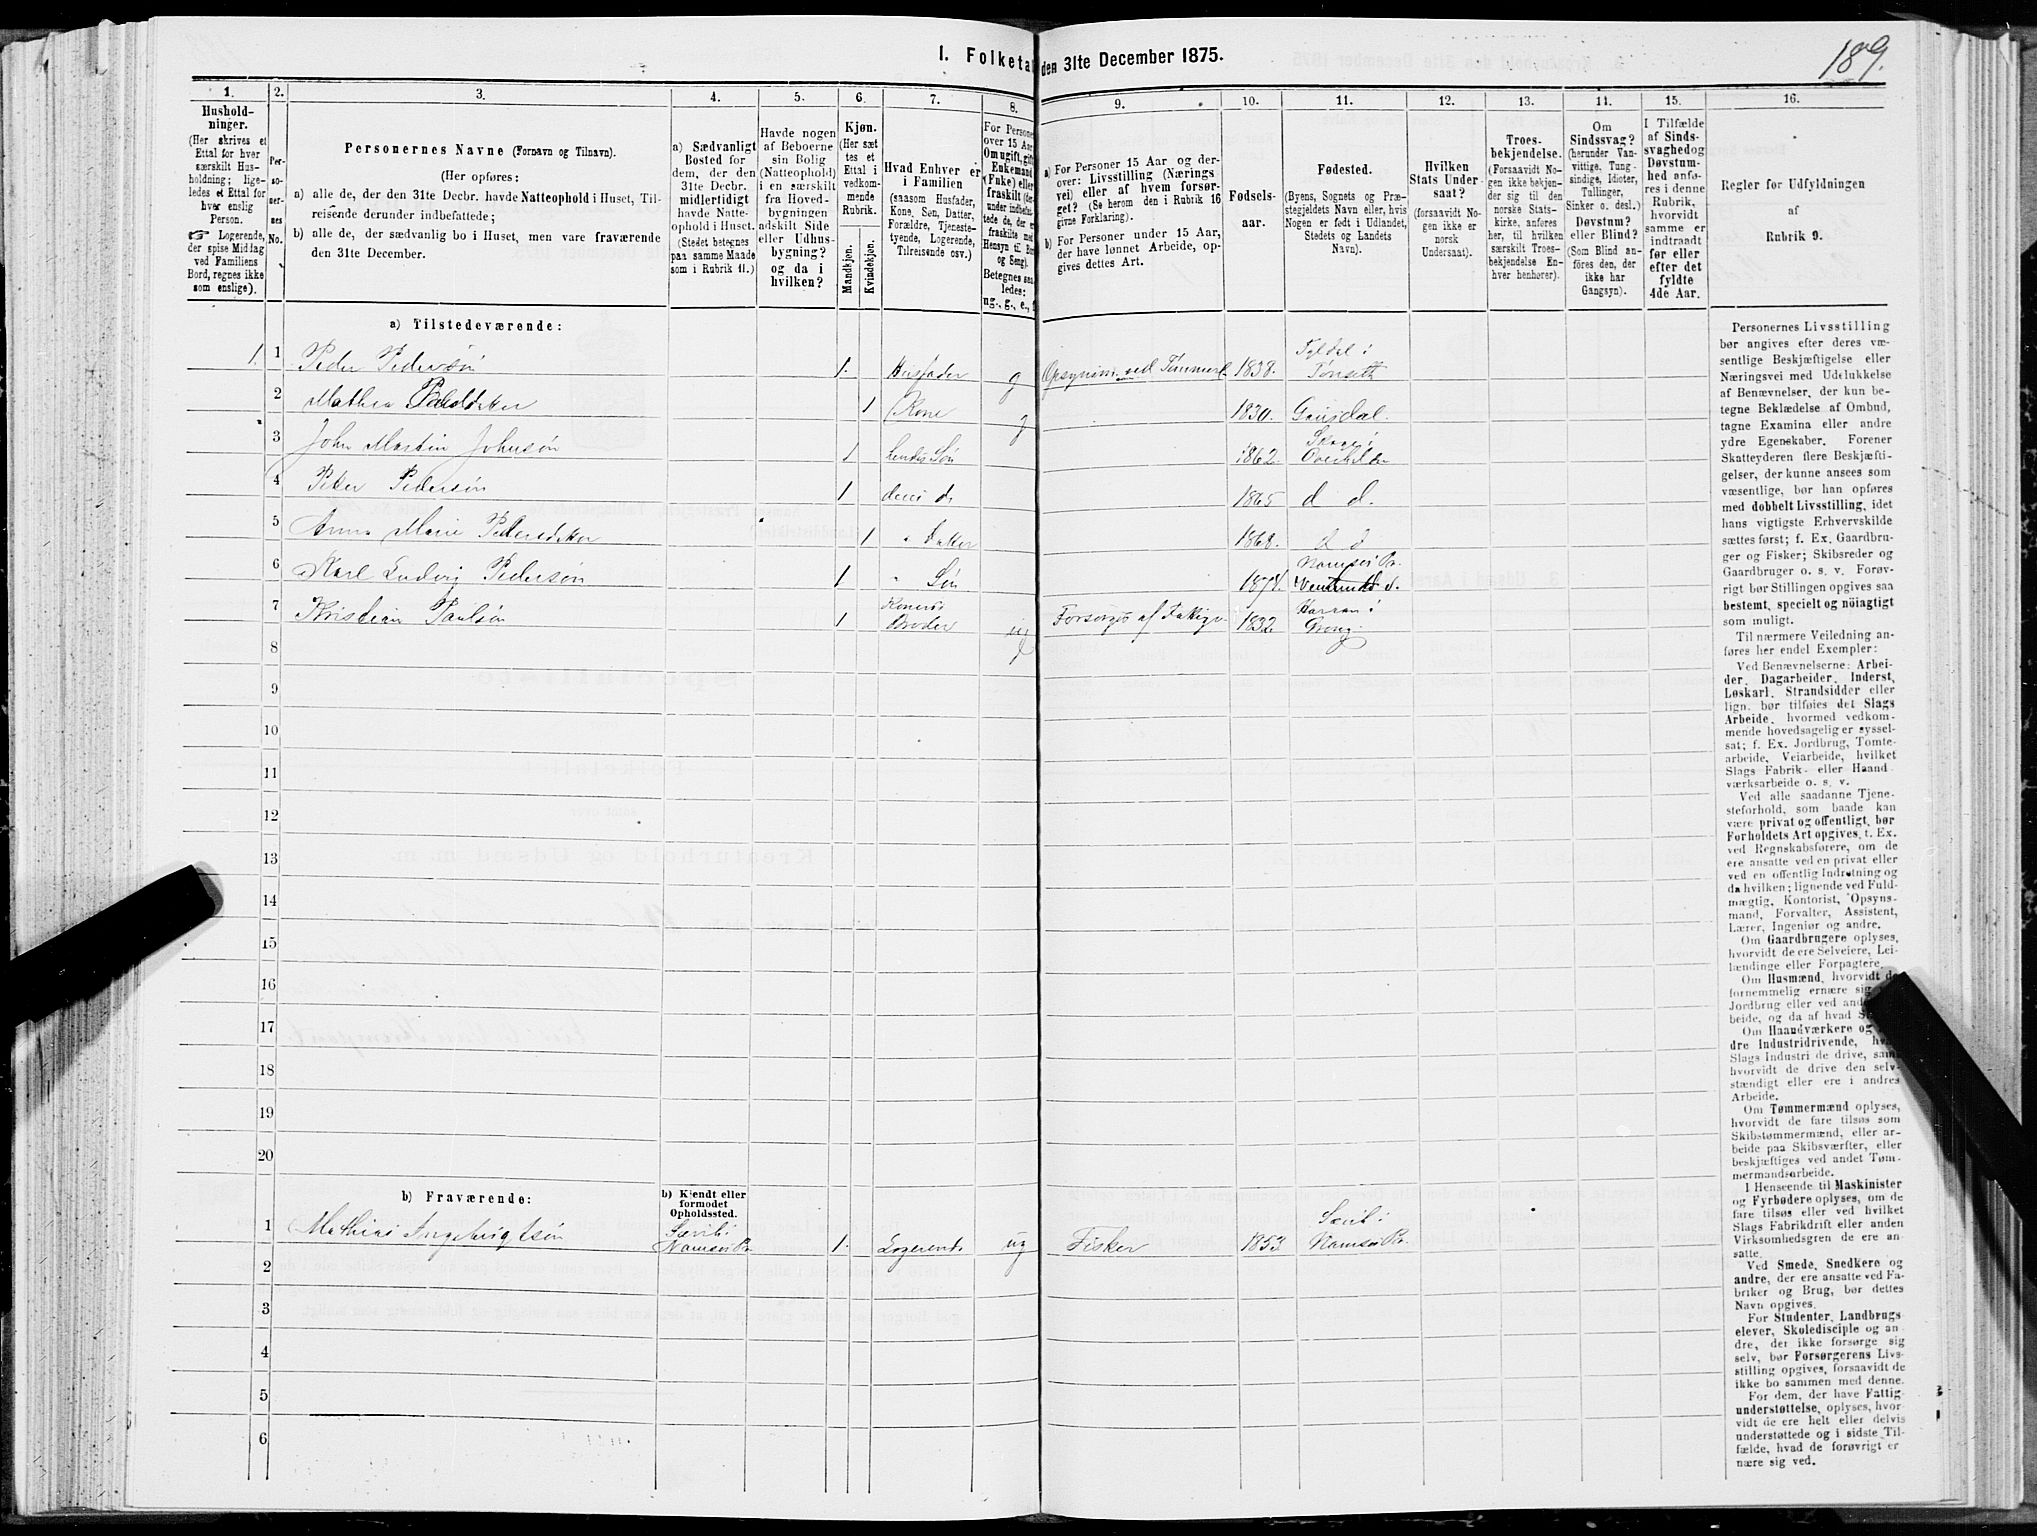 189.
I. Folketal
den 31te December 1875.
1. 2. 3. 4. 5. 6. 7. 8. 9. 10. 11. 12. 13. 14. 15. 16.
Hushold-
ninger.
(Her skrives et
Ettal for hver
særskilt Hus-
holdning; lige-
ledes et Ettal for
hver enslig
Person.
☞ Logerende,
der spise Middag
ved Familiens
Bord, regnes ikke
som enslige).
Per-
so-
ner-
nes
No.
Personernes Navne (Fornavn og Tilnavn).
(Her opføres:
a) alle de, der den 31te Decbr. havde Natteophold i Huset, Til-
reisende derunder indbefattede;
b) alle de, der sædvanlig bo i Huset, men vare fraværende
den 31te December.
a) Sædvanligt
Bosted for
dem, der den
31te Decbr.
midlertidigt
havde Natte-
ophold i Huset.
(Stedet betegnes
paa samme Maade
som i Rubrik 11.)
Havde nogen
af Beboerne
sin Bolig
(Natteophold)
i en særskilt
fra Hoved-
bygningen
adskilt Side
eller Udhus-
bygning?
og da i
hvilken?
Kjøn.
(Her sæt
tes et
Ettal i
vedkom-
mende
Rubrik.
Mandkjøn.
Kvindekjøn.
Hvad Enhver er
i Familien
(saasom Husfader,
Kone, Søn, Datter,
Forældre, Tjeneste-
tyende, Logerende,
Tilreisende osv.)
For Persone
over 15 Aar
Om ugift, gift
Enkemand
(Enke) eller
fraskilt (der-
under indbefat-
tede de, der er
fraskilte med
Hensyn til Bor
og Seng).
Betegnes saa
ledes:
ug., g., e.,
a) For Personer 15 Aar og der-
over: Livsstilling (Nærings
vei) eller af hvem forsør-
get? (Se herom den i Rubrik 16
givne Forklaring).
b) For Personer under 15 Aar,
der have lønnet Arbeide, op-
gives dettes Art.
Fødsels-
aar.
Fødested.
(Byens, Sognets og Præ-
stegjeldets Navn eller, hvis
Nogen er født i Udlandet,
Stedets og Landets
Navn).
Hvilken
Stats Under
saat?
(forsaavidt No-
gen ikke er
norsk
Undersaat).
Troes-
bekjendelse.
(Forsaavidt No
gen ikke bekjen-
der sig til den
norske Stats-
kirke, anføres
her, til hvilken
særskilt Troes-
bekjendelse En-
hver henhører).
Om
Sindssvag?
(herunder Van-
vittige, Tung-
sindige, Idioter,
Tullinger,
Sinker o. desl.)
Døvstum?
eller Blind?
(Som Blind an-
føres den, der
ikke har
Gangsyn).
I Tilfælde
af Sinds-
svaghed og
Døvstum-
hed anfø-
res i denne
Rubrik,
hvorvidt
samme er
indtraadt
før eller
efter det
fyldte
4de Aar.
Regler før Udfyldningen
af
Rubrik 9.
a) Tilstedeværende:
1. 1 Peder Pedersøn 1. Husfader g Opsynsm. ved Tømmerl. 1838. Tyldal i Tønseth
2 Mathea 1 Kone g 1830. Gausdal.
3 John Martin Johnsøn 1 Søn 1862 i
4 Peter Pedersøn 1 deres do 1865 d d.
5 Anna Marie Pedersdatter 1 " Datter 1868. d d
6 Karl Ludvig Pedersøn 1 " Søn Namsos Pr.
7 Kristian Paulsøn 1 Konens Broder ug Forsørges af Fattigv. 1832 Harran i Grong.
8
9
10
11
12
13
14
15
16
17
18
19
20
b) Fraværende:
b) Kjendt eller
formodet
Opholdssted.
1 Mathias Ingebrigtsøn Sævik i Namsos Pr. 1. Logerende ug Fisker 1853 Sævik i Namsos Pr.
2
3
4
5
6
Personernes Livsstilling
bør angives efter deres væ-
sentlige Beskjæftigelse eller
Næringsvei med Udelukkelse
af Benævnelser, der kun be-
tegne Beklædelse af Ombud,
tagne Examina eller andre
ydre Egenskaber. Forener
Skatteyderen flere Beskjæfti-
gelser, der kunne ansees som
væsentlige, bør han opføres
med dobbelt Livsstilling, idet
hans vigtigste Erhvervskilde
sættes først; f. Ex. Gaardbru-
ger og Fisker; Skibsreder og
Gaardbruger o. s. v. Forøv-
rigt bør Stillingen opgives saa
bestemt, specielt og nøiagtigt
som muligt.
Til nærmere Veiledning an-
føres her endel Exempler:
Ved Benævnelserne: Arbei-
der, Dagarbeider, Inderst,
Løskarl, Strandsidder eller
lign. bør tilføies det Slags
Arbeide, hvormed vedkom-
mende hovedsagelig er syssel-
sat; f. Ex. Jordbrug, Tomte-
arbeide, Veiarbeide, hvilket
Slags Fabrik- eller Haand
værksarbeide o. s. v.
Ved alle saadanne Tjene-
steforhold, som baade kan
være privat og offentligt, bør
Forholdets Art opgives, t. Ex.
ved Regnskabsførere, om de
ere ansatte ved en privat eller
ved en offentlig Indretning og
da hvilken; lignende ved Fuld-
mægtig, Kontorist, Opsyns-
mand, Forvalter, Assistent,
Lærer, Ingeniør og andre.
Om Gaardbrugere oplyses,
hvorvidt de ere Selveiere, Lei-
lændinge eller Forpagtere.
Om Husmænd, hvorvidt de
fornemmelig ernære sig
Jordbrug eller ved and
beide, og da af hvad
Om Haandværkere og
dre Industridrivende,
Slags Industri de drive, sam
hvorvidt de drive den selv-
stændigt eller ere i andres
Arbeide.
Om Tømmermænd oplyses,
hvorvidt de fare tilsøs som
Skibstømmermænd, eller ar-
beide paa Skibsværfter, eller
beskjæftiges ved andet Tøm-
mermandsarbeide.
I Henseende til Maskinister
og Fyrbødere oplyses, om de
fare tilsøs eller ved hvilket
Slags Fabrikdrift eller anden
Virksomhedsgren de ere an-
satte.
Ved Smede, Snedkere og
andre, der ere ansatte ved Fa-
briker og Brug, bør dettes
Navn opgives.
For Studenter, Landbrugs
elever, Skoledisciple og an-
dre, der ikke forsørge sig
selv, bør Forsørgerens Livs-
stilling opgives, forsaavidt de
ikke bo sammen med denne.
For dem, der have Fattig-
understøttelse, oplyses, hvor-
vidt de ere helt eller delvis
understøttede og i sidste Til-
fælde, hvad de forøvrigt er
nære sig ved.